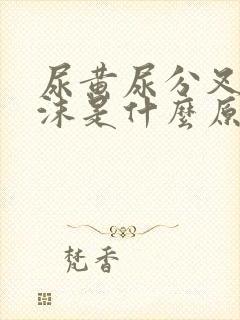 尿黄尿分叉
沫是什麼原
梵香